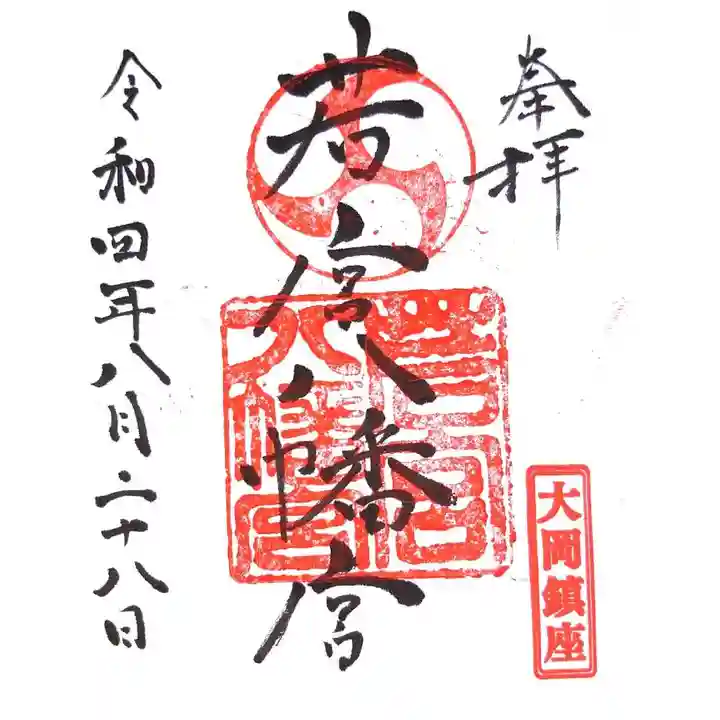 奉拝
大岡鎮座
若宮八幡宮
若宮
八幡宮
令和四年八月二十八日